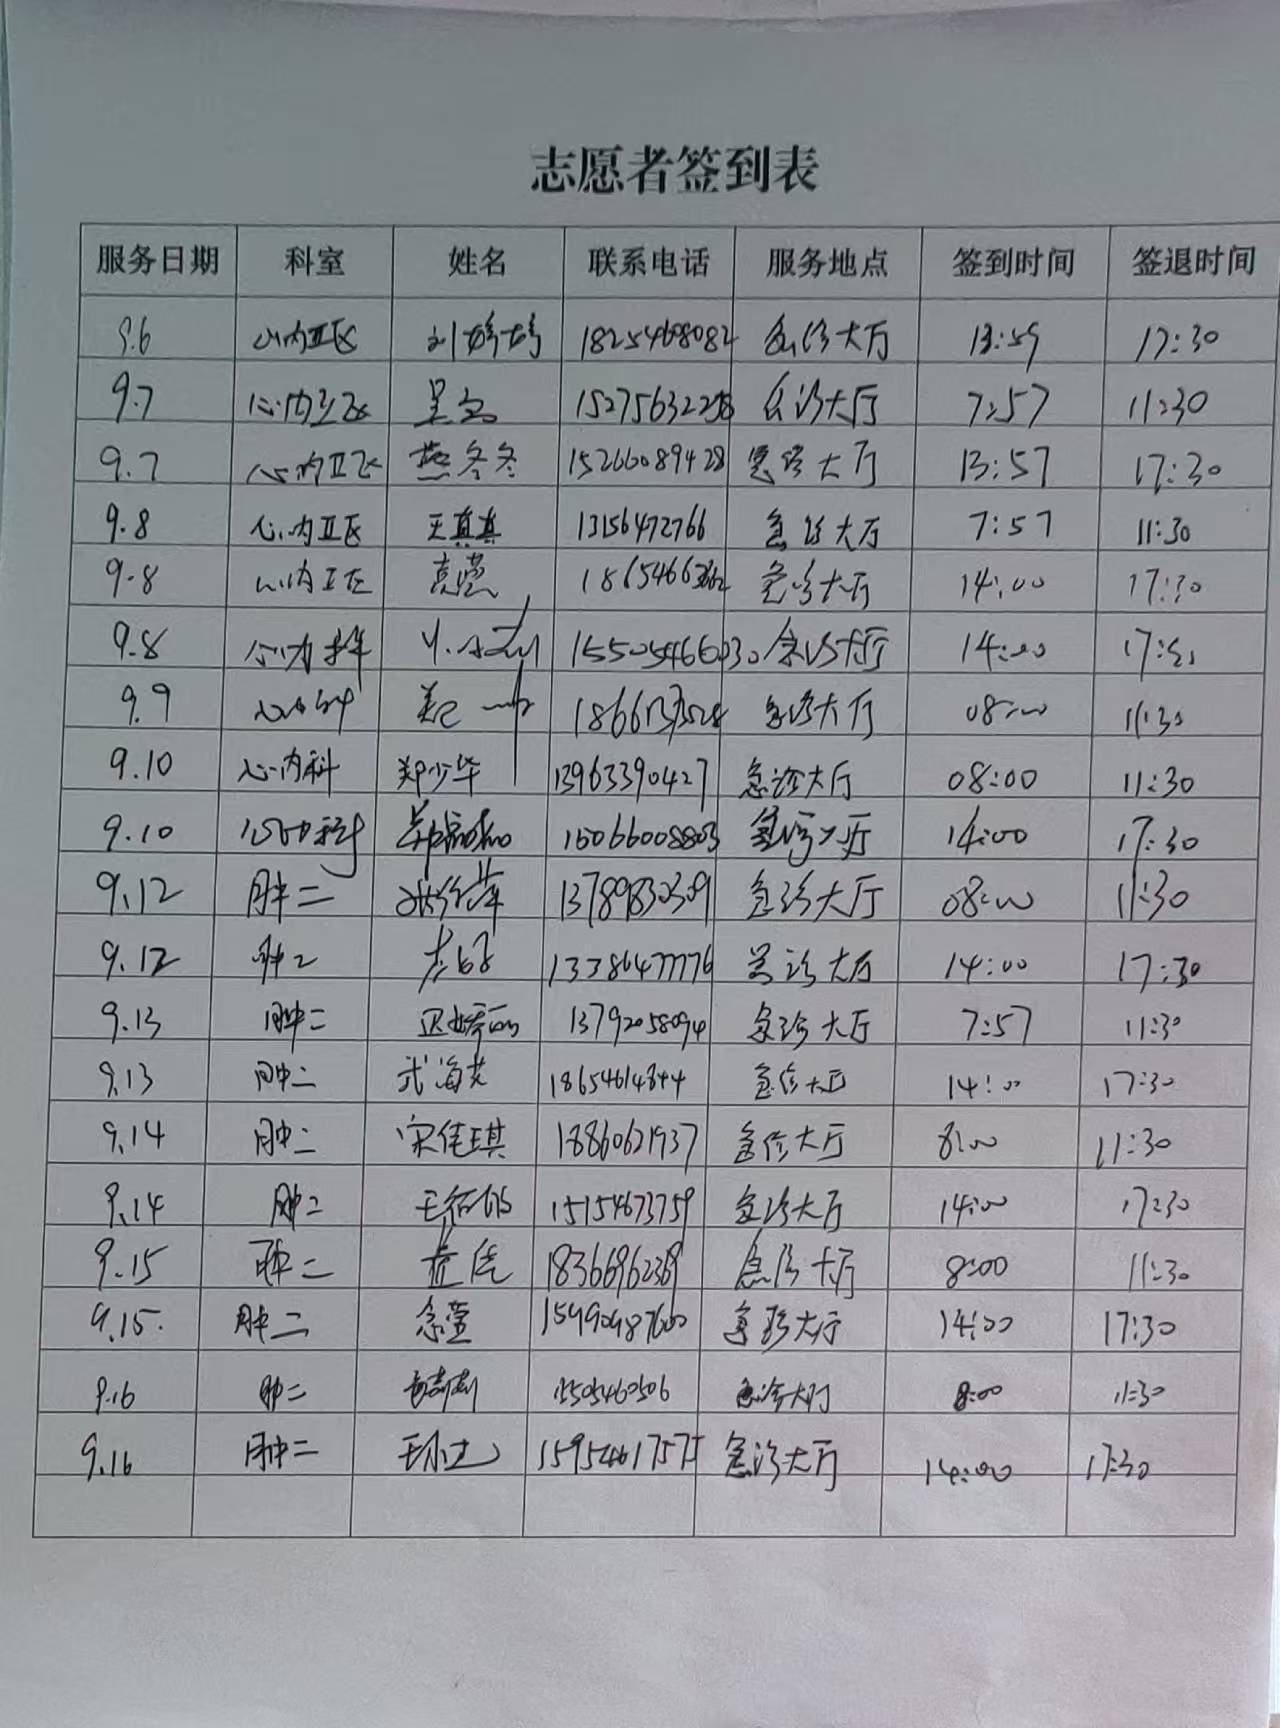 志愿者签到表
服务日期 科室 姓名 联系电话 服务地点 签到时间 签退时间
9.6 心内Ⅱ区 刘婷婷 18254608082 急诊大厅 13:59 17:30
9.7 心内Ⅱ区 15275632258 急诊大厅 7:57 11:30
9.7 心内Ⅱ区 燕冬冬 15266089428 急诊大厅 13:57 17:30
9.8 心内Ⅱ区 王真真 13156472766 急诊大厅 7:57 11:30
9.8 心内Ⅱ区 急诊大厅 14:00 17:30
9.8 心内 15505466030 急诊大厅 14:00
9.9 心内科 急诊大厅 08:00 11:30
9.10 心内科 郑少华 13963390427 急诊大厅 08:00 11:30
9.10 心内科 15066008803 急诊大厅 14:00 17:30
9.12 肿二 急诊大厅 08:00 11:30
9.12 肿二 急诊大厅 14:00 17:30
9.13 肿二 13792058094 急诊大厅 7:57 11:30
9.13 肿二 武海芝 18654614344 急诊大厅 14:00 17:30
9.14 肿二 宋佳琪 18860621937 急诊大厅 8:00 11:30
9.14 肿二 15154673759 急诊大厅 14:00 17:30
9.15 肿二 18366962369 急诊大厅 8:00 11:30
9.15 肿二 急诊大厅 14:00 17:30
9.16 肿二 15505460506 急诊大厅 8:00 11:30
9.16 肿二 15954617575 急诊大厅 14:00 17:30